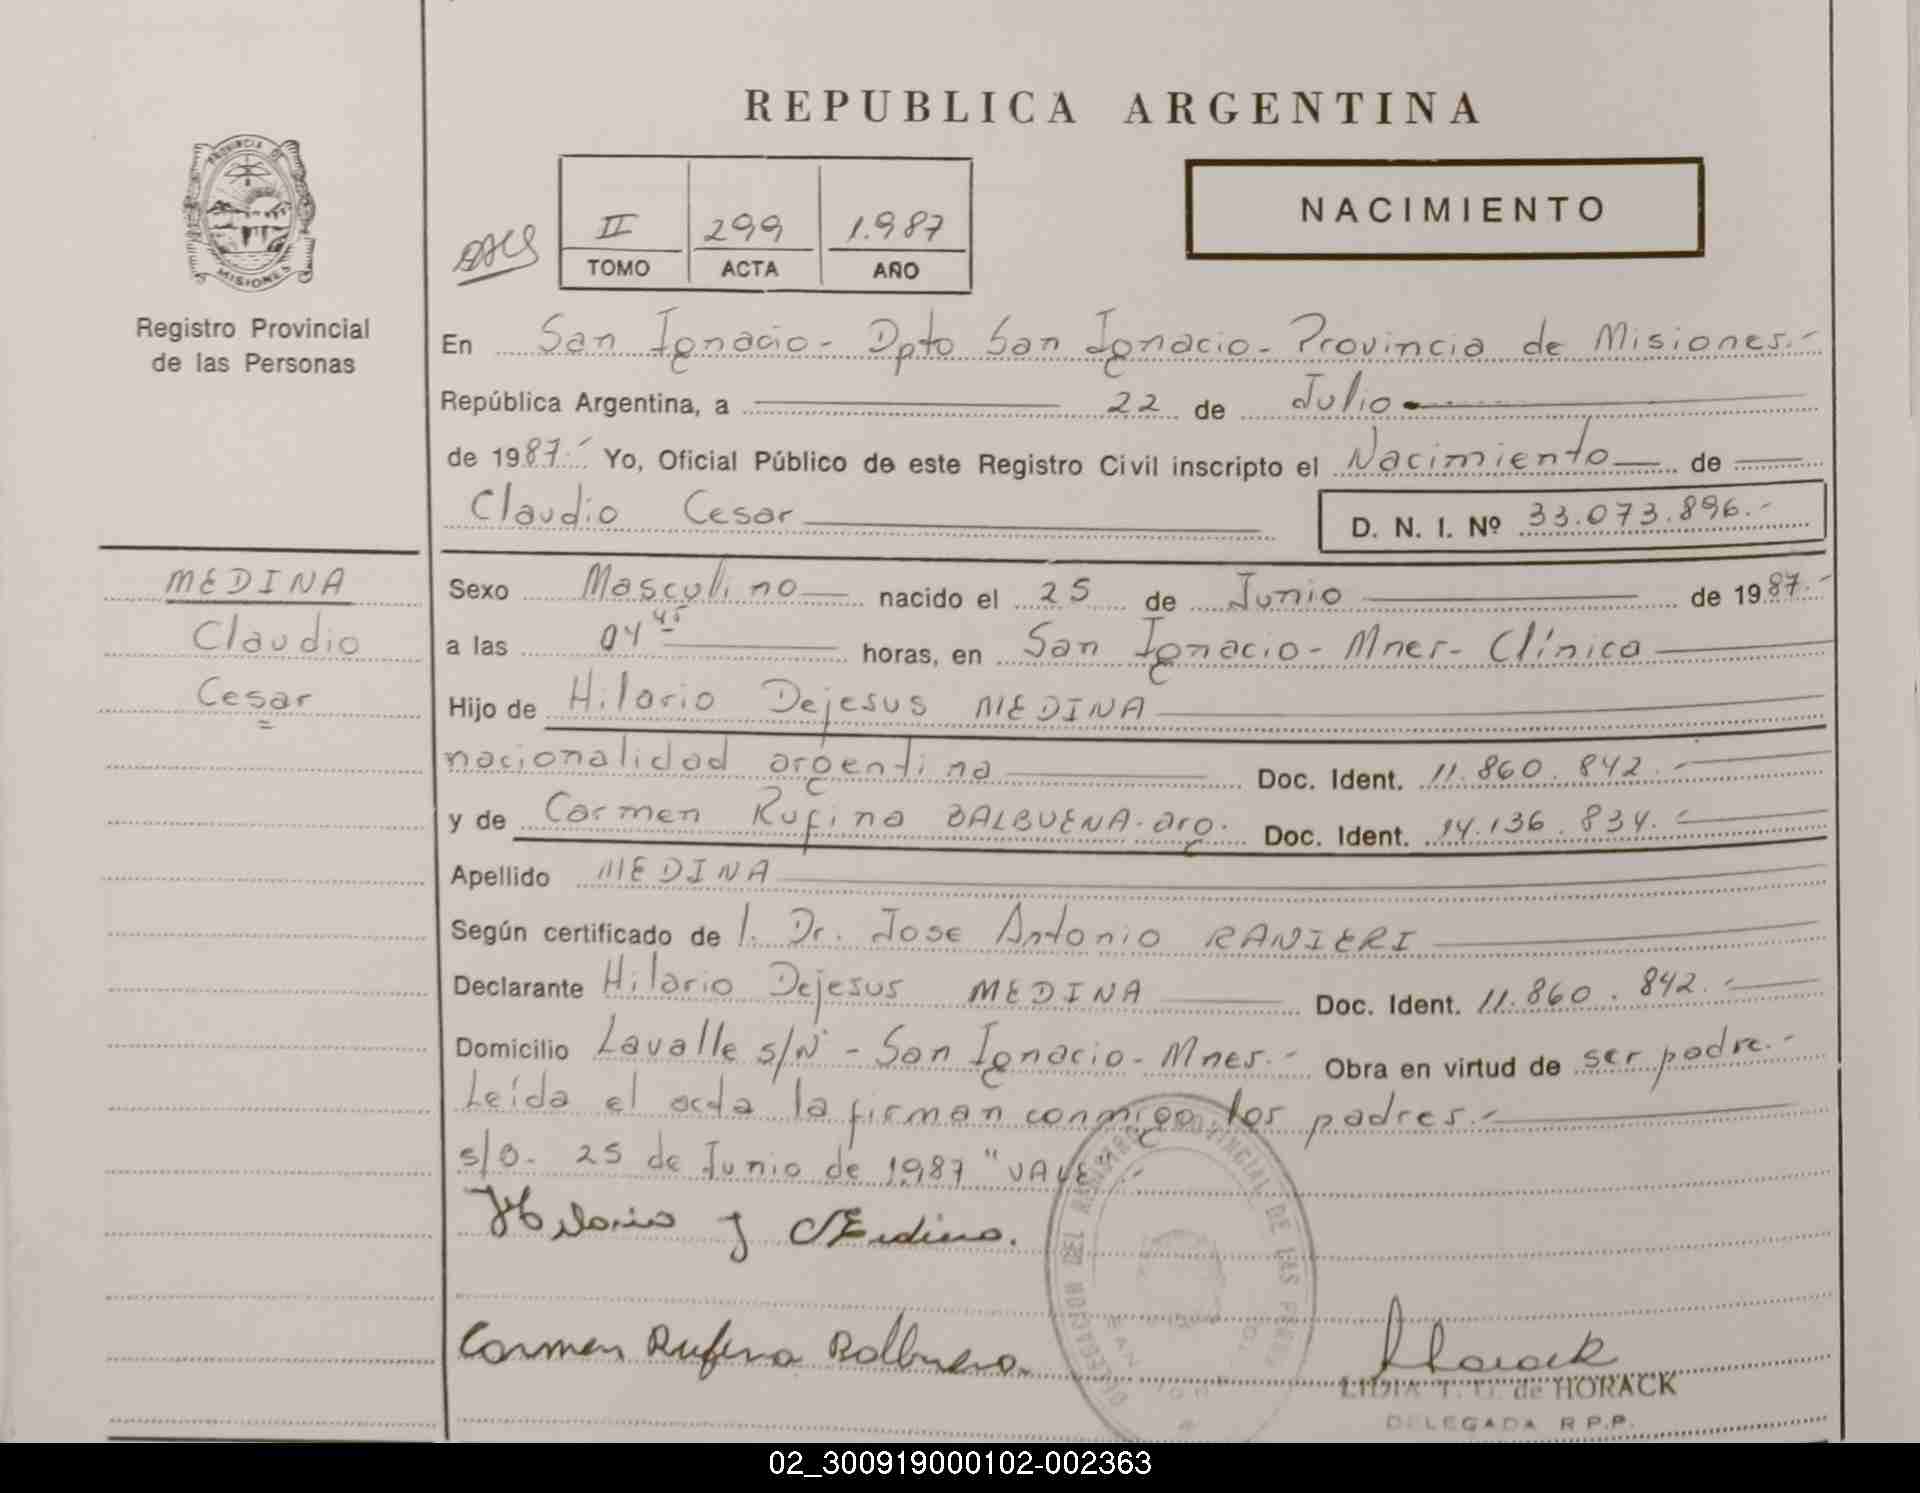 REPUBLICA ARGENTINA
PROVINCIA DE
MISIONES
Registro Provincial
de las Personas
II 299 1.987
TOMO ACTA AÑO
NACIMIENTO
En San Ignacio - Dpto San Ignacio - Provincia de Misiones.-
República Argentina, a 22 de Julio
de 1987.- Yo, Oficial Público de este Registro Civil inscripto el Nacimiento de
Claudio Cesar
D. N. I. Nº 33.073.896.-
MEDINA
Claudio
Cesar
Sexo Masculino nacido el 25 de Junio de 1987.-
a las 04 45 horas, en San Ignacio - Mnes - Clínica
Hijo de Hilario Dejesus MEDINA
nacionalidad argentina Doc. Ident. 11.860.842.-
y de Carmen Rufina BALBUENA - arg. Doc. Ident. 14.136.834.-
Apellido MEDINA
Según certificado de l. Dr. Jose Antonio RANIERI
Declarante Hilario Dejesus MEDINA Doc. Ident. 11.860.842.-
Domicilio Lavalle s/Nº - San Ignacio - Mnes.- Obra en virtud de ser padre.-
Leída el acta la firman conmigo los padres.-
s/o. 25 de Junio de 1.987 "VALE".-
Hilario J Medina.
Carmen Rufina Balbuena.
DELEGACION DEL REGISTRO PROVINCIAL DE LAS PERSONAS
SAN IGNACIO
Horack
LIDIA T. G. de HORACK
DELEGADA R.P.P.
02_300919000102-002363